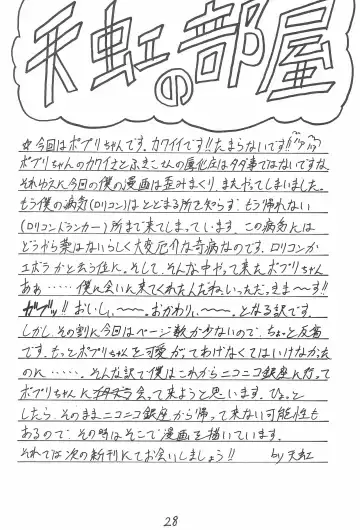 天虹の部屋
☆今回はポプリちゃんです。カワイイです!!たまらないです!!
ポプリちゃんのカワイさとふきこさんの魔化圧はタダ事ではないですな
それゆえに今日の僕の漫画は歪みまくり、またやってしまいました。
もう僕の病気(ロリコン)はとどまる所を知らず、もう帰れない
(ロリコンドランカー)所まで来てしまっています。この病気には
どうやら薬はないらしく大変厄介な奇病なのです。ロリコンか
エボラかと云う位に。そして、そんな中やって来たポプリちゃん
ああ……僕に会いに来てくれたんだね、いっただっきま〜〜す!!
ガブッ!!おいしい、〜〜。おかわりぃ、〜〜。となる訳です。
しかし、その割に今回はページ数が少ないので、ちょっと反省
です。もっとポプリちゃんを可愛がってあげなくてはいけなかった
のに……。そんな訳で僕はこれからニコニコ銀座に行って
ポプリちゃんに会って来ようと思います。ひょっと
したら、そのままニコニコ銀座から帰って来ない可能性も
あるので、その時はそこで漫画を描いています。
それでは次の新刊にてお会いしましょう!! by天虹
28